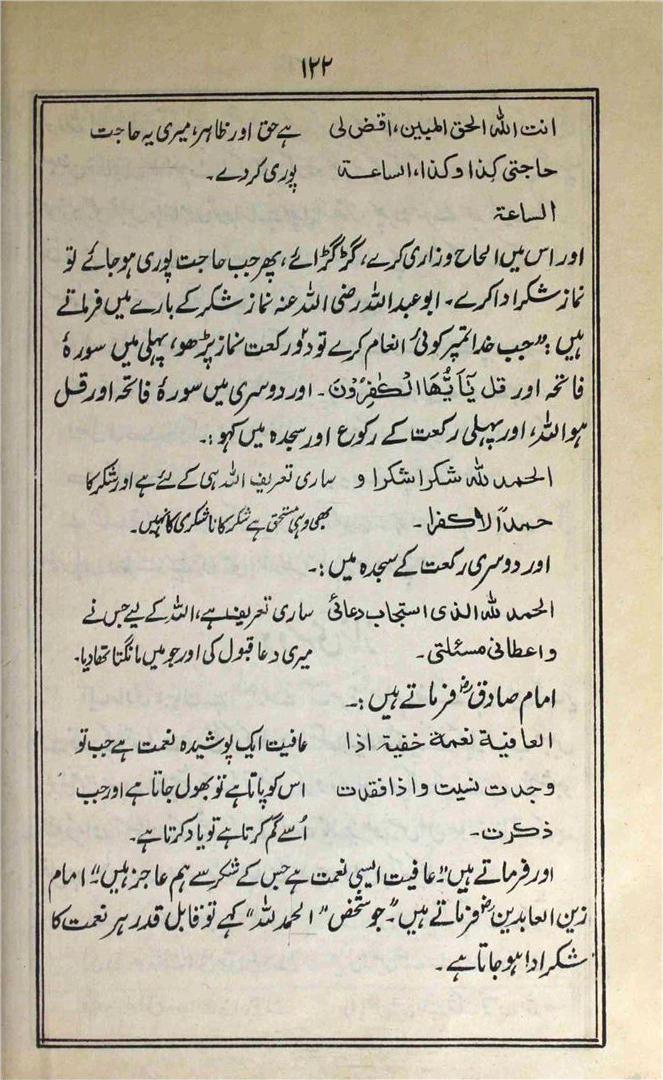 ۱۲۲
انت الله الحق المبین، اقض لی ہے حق اور ظاہر، میری یہ حاجت
حاجتی کذا وکذا، الساعة پوری کر دے۔
الساعة
اور اس میں الحاح وزاری کرے، گڑگڑائے، پھر جب حاجت پوری ہو جائے تو
نماز شکر ادا کرے۔ ابو عبداللہ رضی اللہ عنہ نماز شکر کے بارے میں فرماتے
ہیں: "جب خدا تمپر کوئی انعام کرے تو دو رکعت نماز پڑھو، پہلی میں سورۂ
فاتحہ اور قل یٰاَیُّهَا الْکٰفِرُوْنَ۔ اور دوسری میں سورۂ فاتحہ اور قل
ہو اللہ، اور پہلی رکعت کے رکوع اور سجدہ میں کہو:۔
الحمد للہ شکرا شکرا و ساری تعریف اللہ ہی کے لئے ہے اور شکر کا
حمداً الا کفرا۔ بھی وہی مستحق ہے شکر کا نا شکری کا نہیں۔
اور دوسری رکعت کے سجدہ میں:۔
الحمد للہ الذی استجاب دعائی ساری تعریف ہے، اللہ کے لیے جس نے
واعطانی مسئلتی۔ میری دعا قبول کی اور جو میں مانگتا تھا دیا۔
امام صادقؓ فرماتے ہیں:۔
العافیة نعمة خفیة اذا عافیت ایک پوشیدہ نعمت ہے جب تو
وجدت نسیت واذا فقدت اس کو پاتا ہے تو بھول جاتا ہے اور جب
ذکرت۔ اُسے گم کرتا ہے تو یاد کرتا ہے۔
اور فرماتے ہیں "عافیت ایسی نعمت ہے جس کے شکر سے ہم عاجز ہیں"۔ امام
زین العابدینؓ فرماتے ہیں۔ "جو شخص "الحمد للہ" کہے تو قابل قدر ہر نعمت کا
شکر ادا ہو جاتا ہے۔